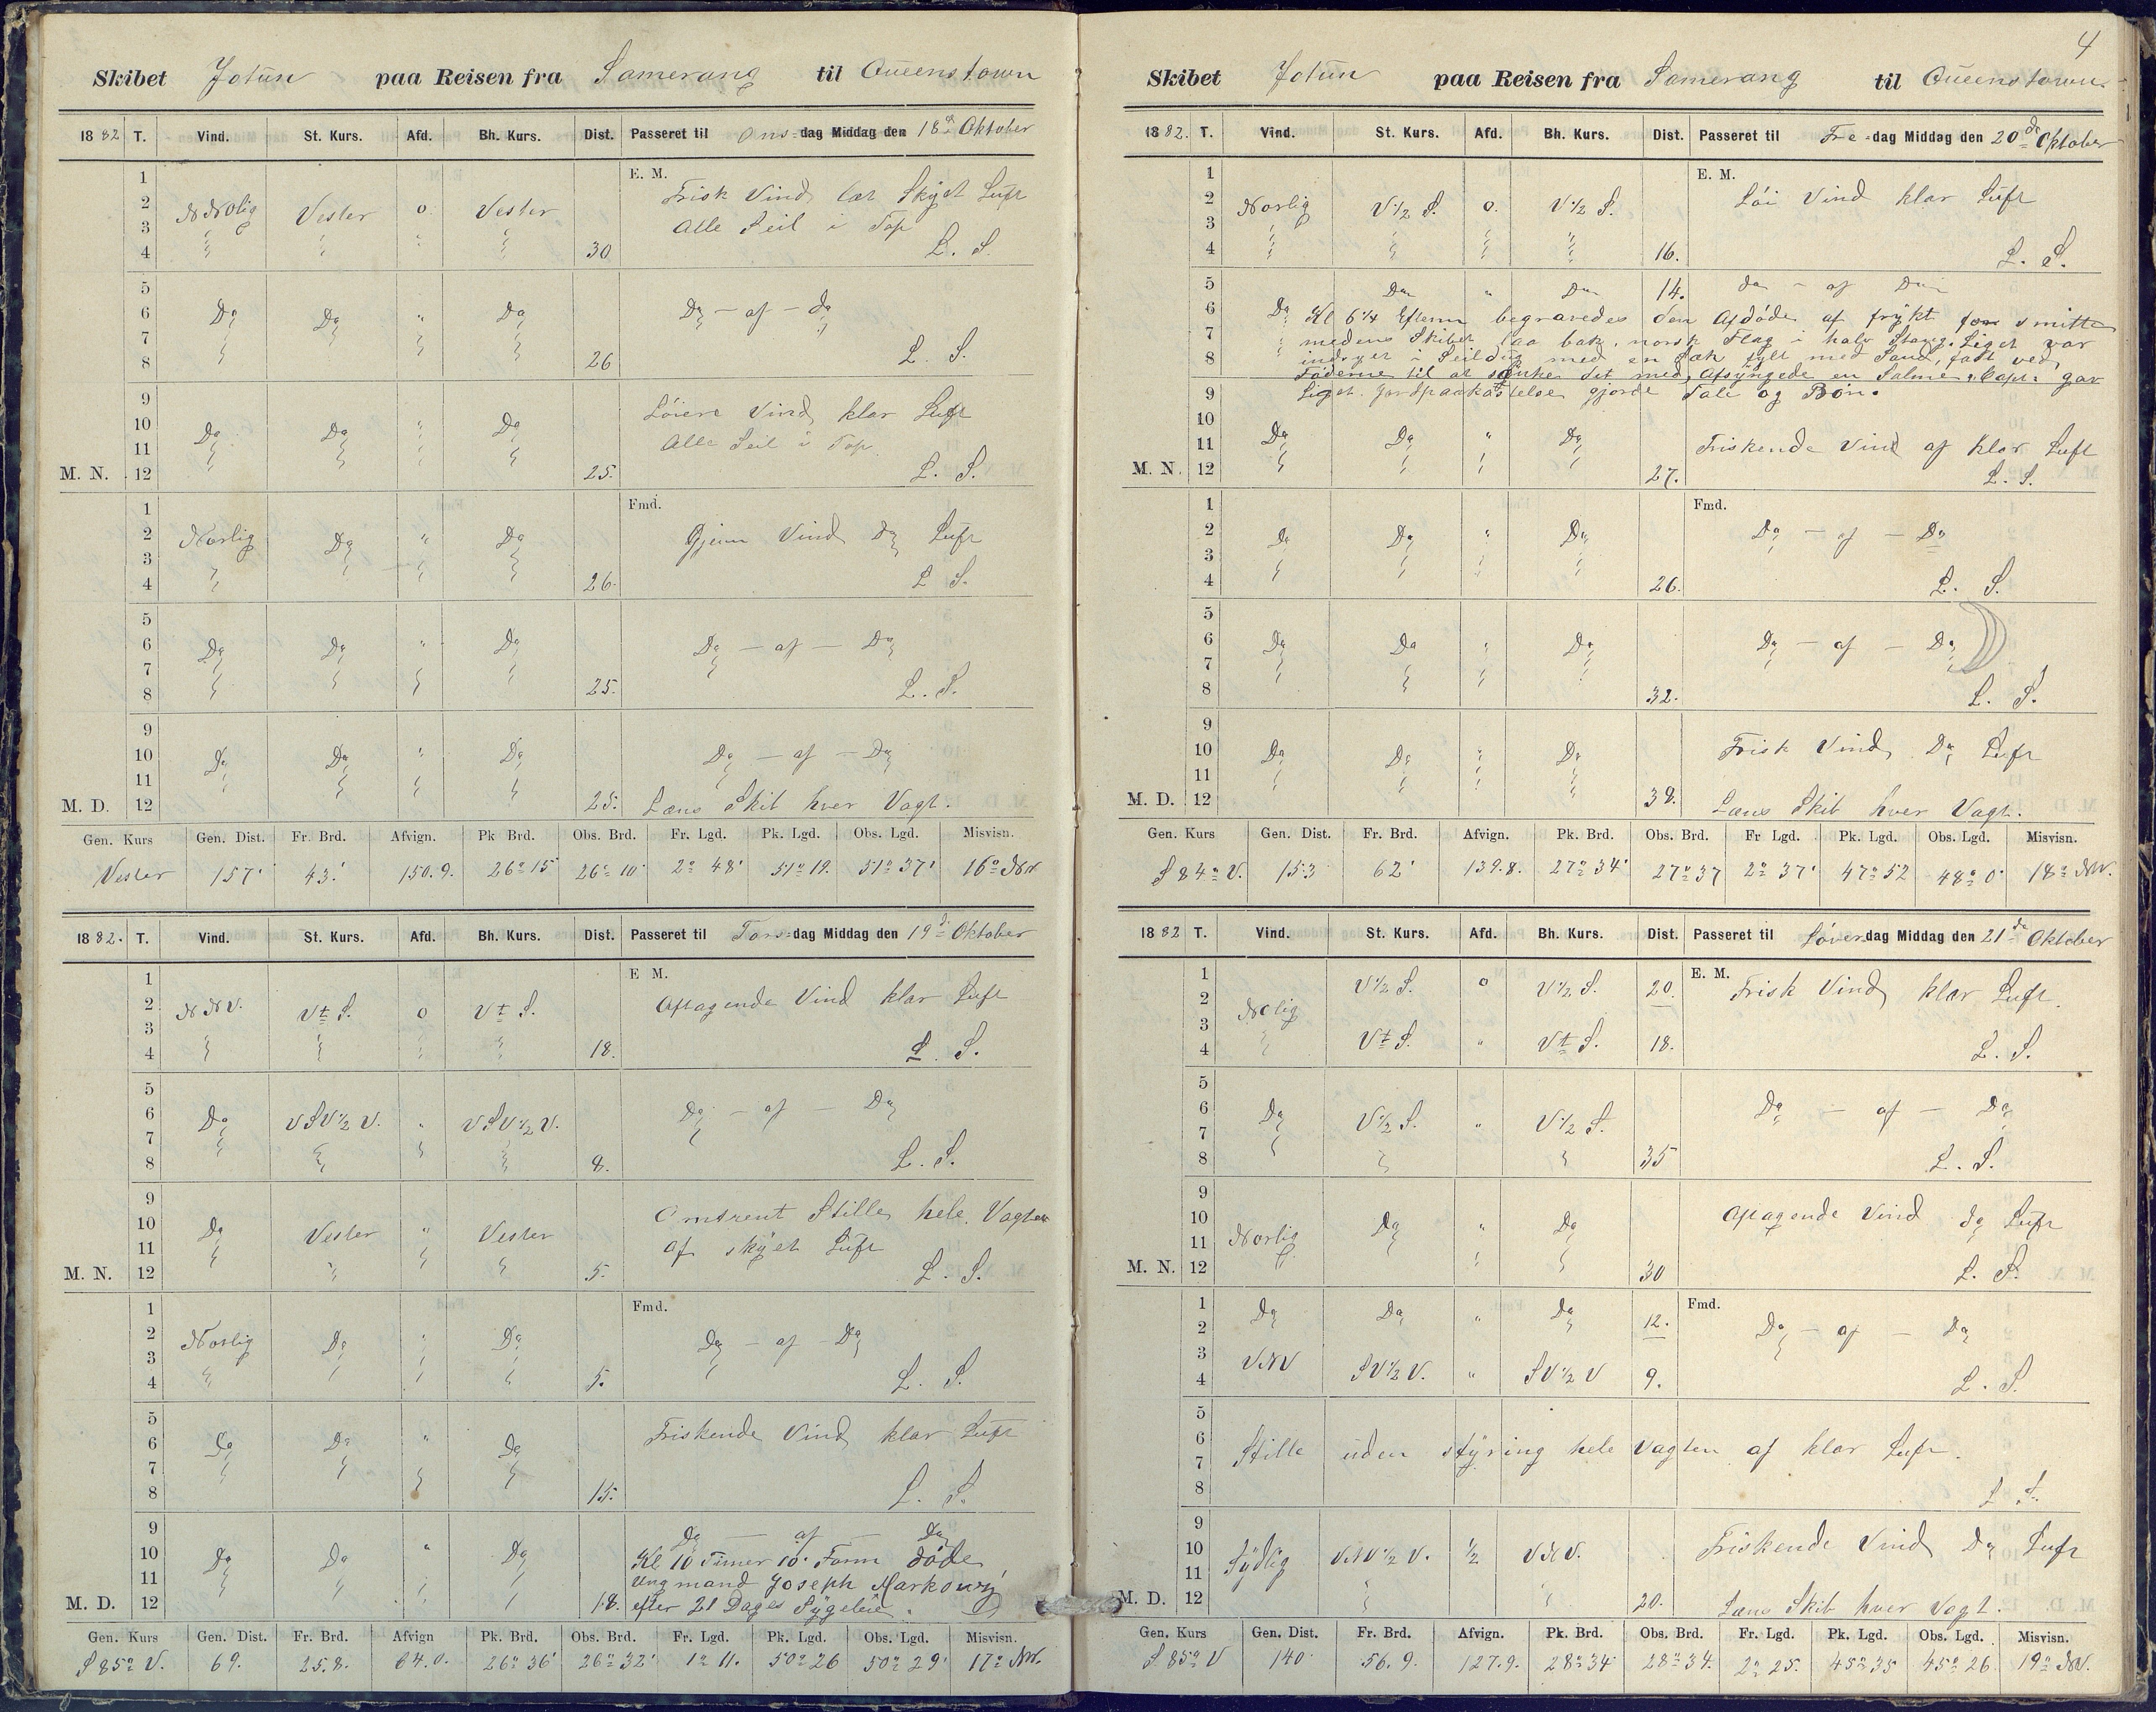 Skibet Jotün paa Reisen fra Samerang til Queenstown
1882 T. Vind. St. Kurs. Afd. Bh. Kurs. Dist. Passeret til Ons-dag Middag den 18de Oktober
1 E. M.
2 NNolig Vester o Vester Frisk Vind let Skyet Luft
3 " " " " Alle Seil i Top
4 30 L. S.
5
6 Do Do " Do Do - af - do
7
8 26 L. S.
9 Löiere Vind klar Luft
10 Do Do " Do Alle Seil i Top
11
M. N. 12 25. L. S.
1 Fmd.
2 Norlig Do " Do Gjenn Vind Do Luft
3
4 26. L S.
5
6 Do Do " Do Do - af - Do
7
8 25. L. S.
9
10 Do Do " Do Do - af - Do
11
M. D. 12 25. Læns Skib hver Vagt.
Gen. Kurs Gen. Dist. Fr. Brd. Afvign. Pk Brd. Obs. Brd. Fr. Lgd. Pk. Lgd. Obs. Lgd. Misvisn.
Vester 157' 43.' 150.9. 26° 15' 26° 10' 2° 48' 51° 19. 51° 37' 16° NW
1882. T. Vind. St. Kurs. Afd. Bh. Kurs. Dist. Passeret til Tors-dag Middag den 19de Oktober
1 E M.
2 NNV. Vt S. o Vt S. Aftagende Vind klar Luft
3
4 18. L. S.
5
6 Do VSV½ V. " VSV½ V. Do - af - Do
7
8 8. L. S.
9
10 Do Vester " Vester Omtrent Stille hele Vagten
11 af skyet Luft
M. N. 12 5. L. S.
1 Fmd.
2 Norlig Do " Do Do - af - Do
3
4 5. L. S.
5
6 Do Do " Do Friskende Vind klar Luft
7
8 15. L. S.
9 Do - af - Do
10 Do Do " Do Kl 10 Timer 10' Form döde
11 Ungmand Joseph Markowij
M. D. 12 18. efter 21 Dages Sygeleie.
Gen. Kurs Gen. Dist. Fr. Brd. Afvign Pk. Brd. Obs. Brd. Fr. Lgd. Pk. Lgd. Obs. Lgd. Misvisn.
S 85° V. 69. 25.8. 64.0. 26° 36' 26° 32' 1° 11. 50° 26 50° 29' 17° NW.
4
Skibet Jotün paa Reisen fra Samerang til Queenstown
1882. T. Vind. St. Kurs. Afd. Bh. Kurs. Dist. Passeret til Fre-dag Middag den 20de Oktober
1 E. M.
2 Norlig V½ S. o. V½ S. Löi Vind klar Luft
3
4 16. L. S.
5 Do " Do 14. do - af Do
6 Do Kl 6¼ Efterm begravedes den Afdöde af frykt for smitte
7 medens Skibet laa bak, norsk Flag i halv Stang. Liget var
8 indsyet i Seildug med en Sæk fylt med Sand, fast ved
Föderne til at sünke det med, Afsyngede en Salme, Capt. gav
9 Liget Jordspaakastelse gjorde Tale og Bön.
10
11 Do Do " Do Friskende Vind af klar Luft
M. N. 12 27. L. S.
1 Fmd.
2 Do Do " Do Do - af - Do
3
4 26. L. S.
5
6 Do Do " Do Do - af - Do
7
8 32. L. S.
9
10 Do Do " Do Frisk Vind Do Luft
11
M. D. 12 38. Læns Skib hver Vagt.
Gen. Kurs Gen. Dist. Fr. Brd. Afvign. Pk. Brd. Obs. Brd. Fr Lgd. Pk. Lgd. Obs. Lgd. Misvisn.
S 84° V. 153 62' 139.8. 27° 34' 27° 37 2° 37' 47° 52 48° 0' 18° NW.
1882 T. Vind. St. Kurs. Afd. Bh. Kurs. Dist. Passeret til Löver-dag Middag den 21de Oktober
1 V½ S. o V½ S. 20. E. M. Frisk Vind klar Luft.
2 Nolig
3
4 Vt S. " Vt S. 18. L. S.
5
6 Do V½ S. " V½ S. Do - af - Do
7
8 35 L. S.
9
10 Norlig Do " Do Aftagende Vind do Luft
11
M. N. 12 30 L. S.
1 Do Do " Do 12. Fmd.
2 Do - af - Do
3 VNV SV½ V. " SV½ V 9.
4 L. S.
5
6 Stille uden styring hele Vagten af klar Luft.
7
8 L S.
9
10 Sydlig VNV½ V. ½ VNV. Friskende Vind Do Luft
11
M. D. 12 20. Læns Skib hver Vagt.
Gen. Kurs Gen. Dist. Fr. Brd. Afvign. Pk. Brd. Obs. Brd. Fr. Lgd. Pk. Lgd. Obs. Lgd. Misvisn.
S 85° V 140 56.9. 127.9. 28° 34' 28° 34. 2° 25. 45° 35 45° 26 19° NV.